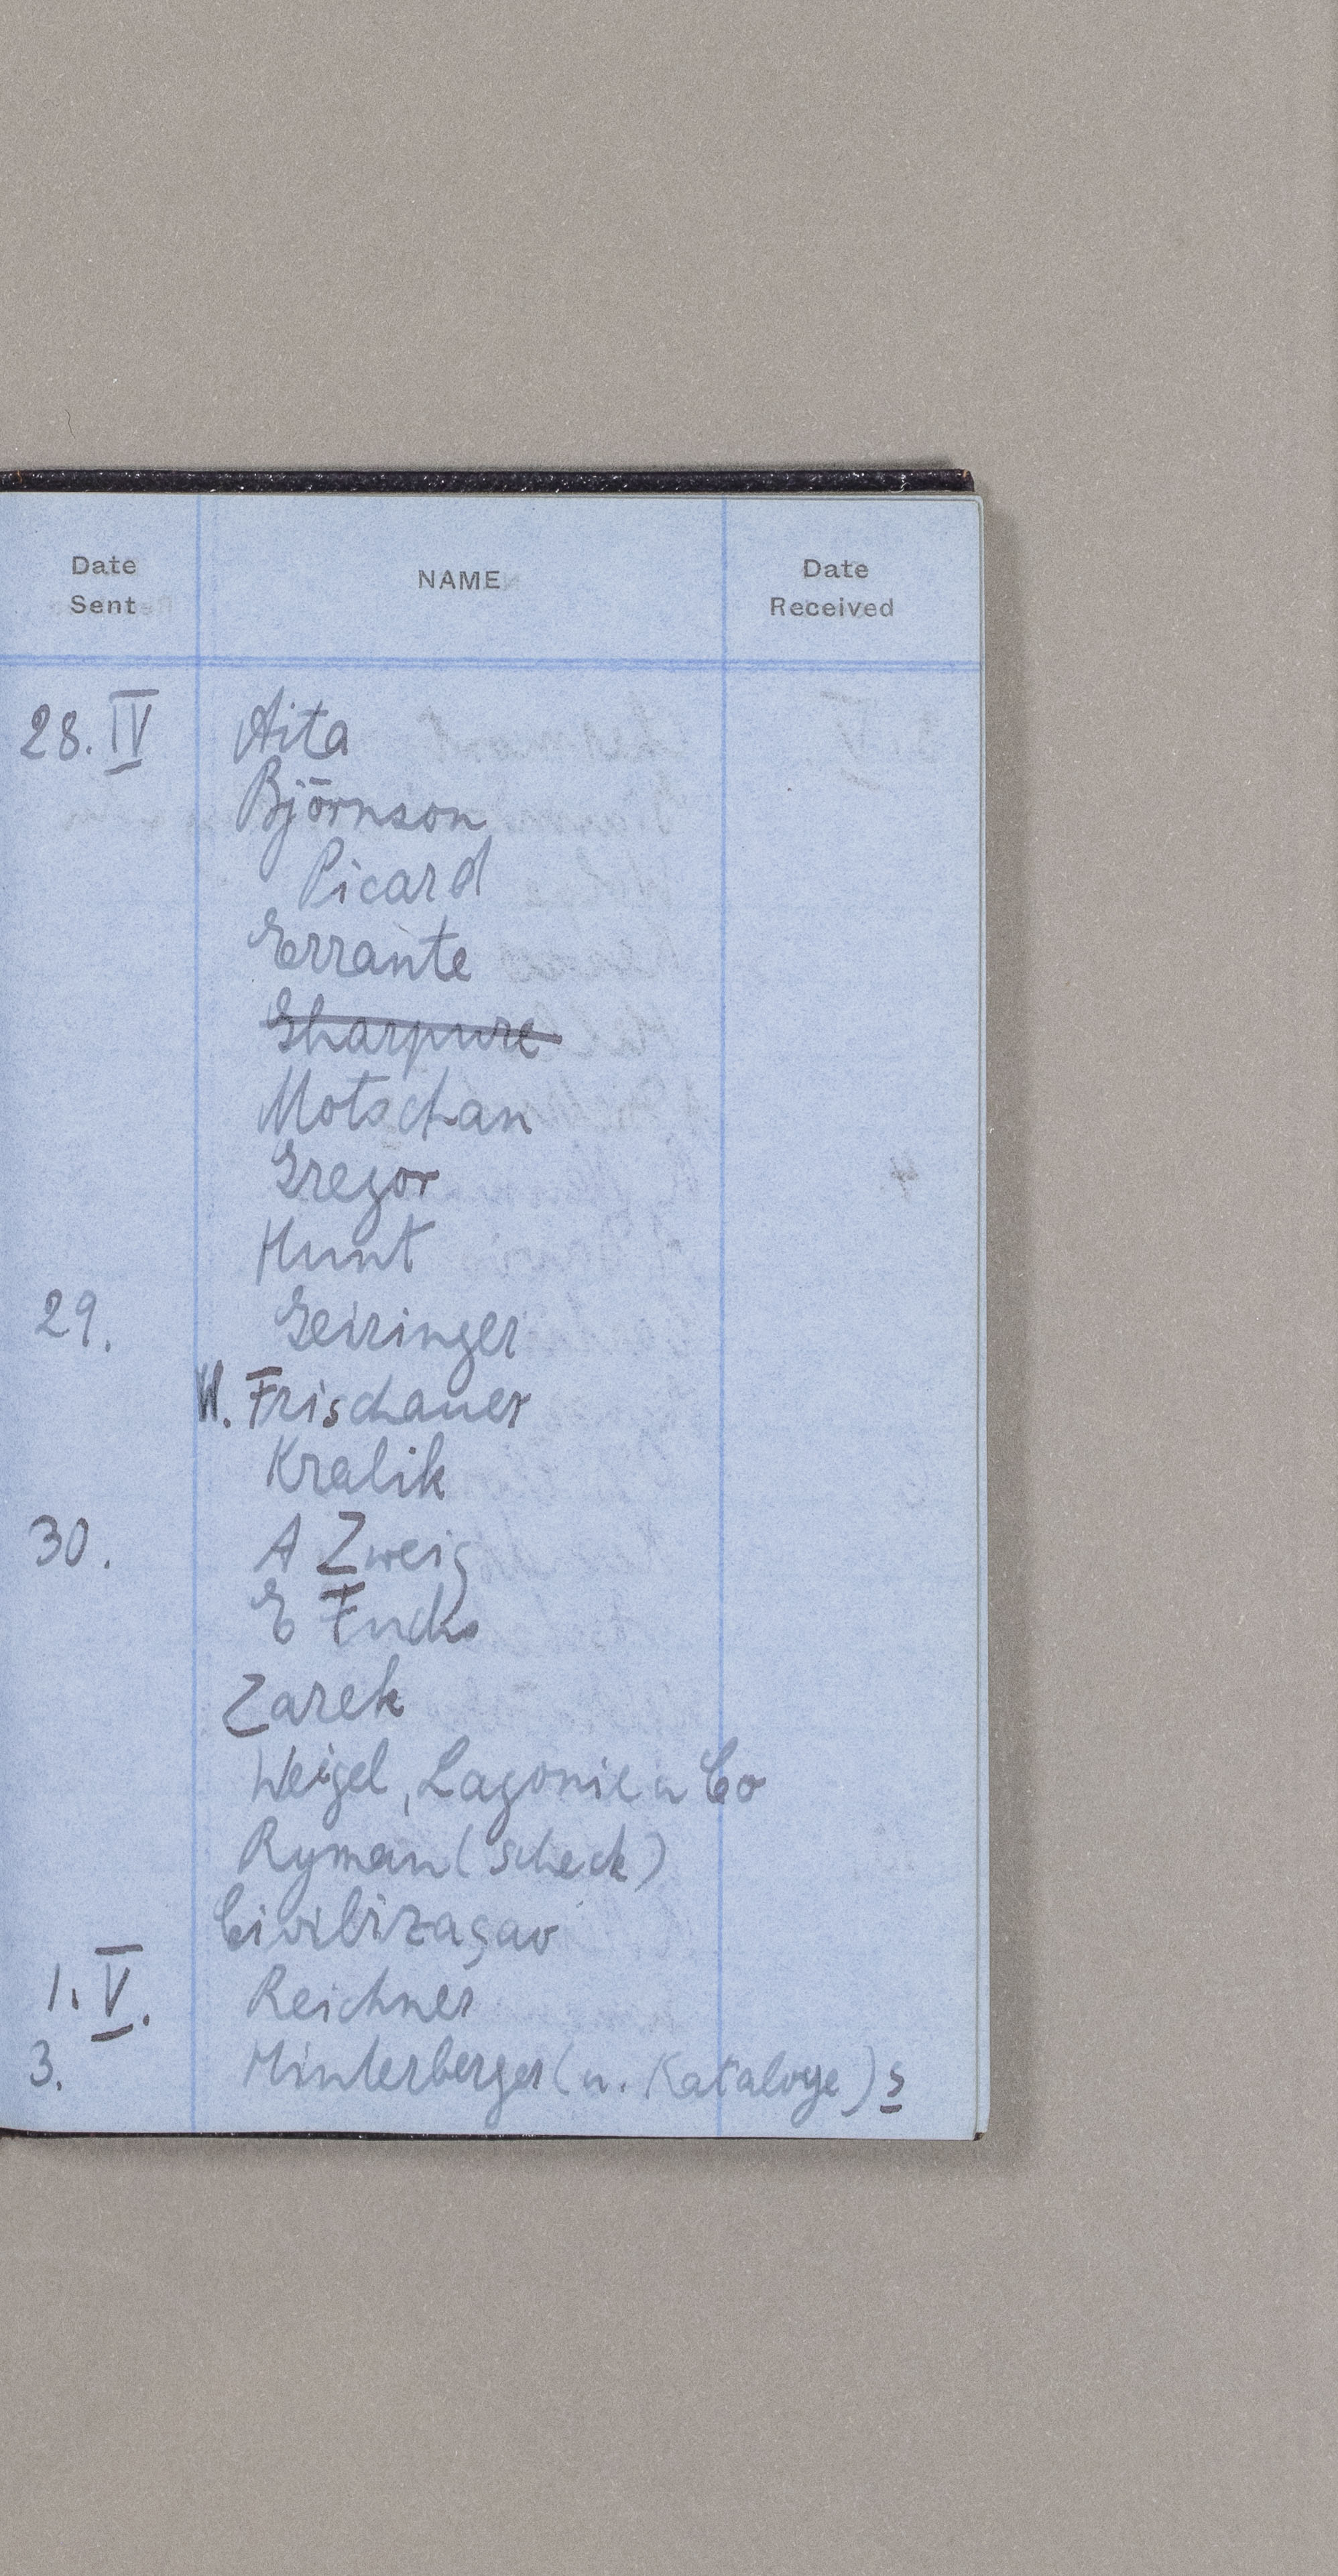 Date Sent NAME Date Received
28. IV Aita
Björnson
Picard
Errante
Gharpure
Motschan
Gregor
Hunt
29. Geiringer
W. Frischauer
Kralik
30. A Zweig
E Fuchs
Zarek
Weigel, Lagonie u Co
Ryman (Scheck)
Civilizaçao
1. V. Reichner
3. Hinterberger (u. Kataloge) s